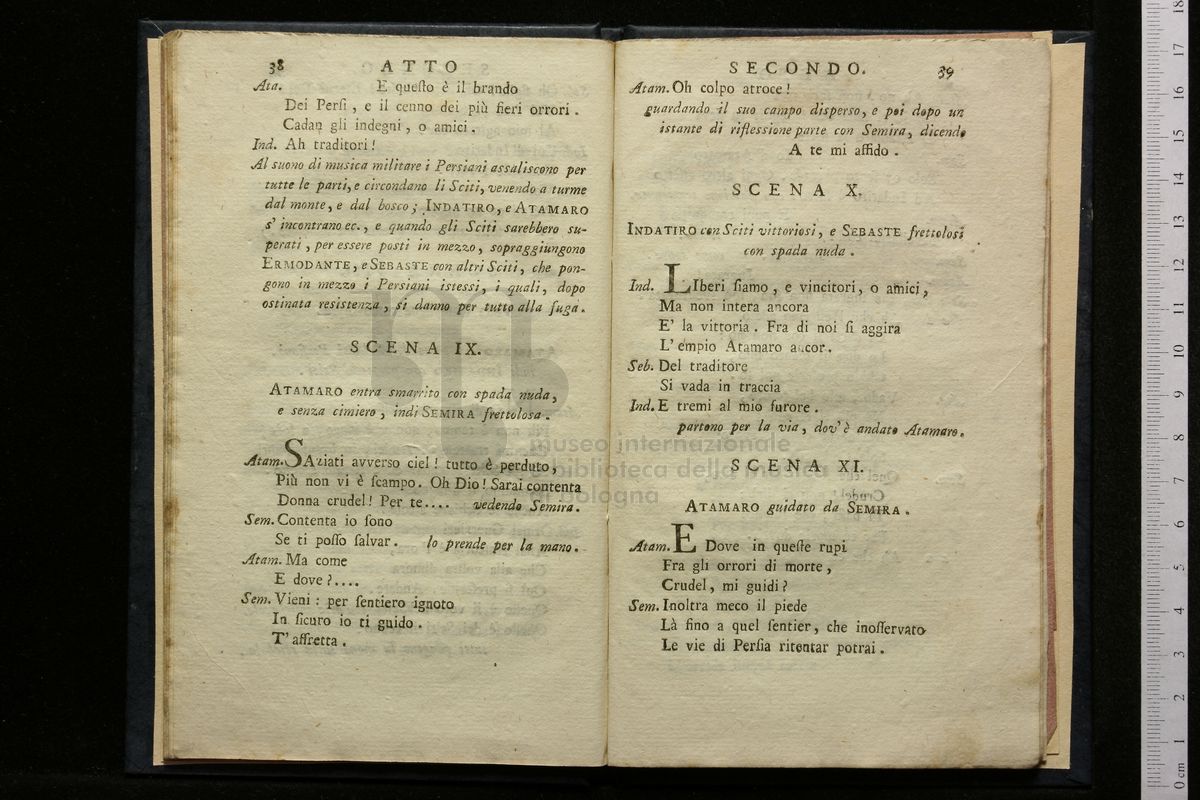 38 ATTO
Ata. E queſto è il brando
Dei Perſi, e il cenno dei più fieri orrori.
Cadan gli indegni, o amici.
Ind. Ah traditori!
Al suono di musica militare i Persiani assaliscono per
tutte le parti, e circondano li Sciti, venendo a turme
dal monte, e dal bosco; INDATIRO, e ATAMARO
s' incontrano ec., e quando gli Sciti sarebbero su-
perati, per essere posti in mezzo, sopraggiungono
ERMODANTE, e SEBASTE con altri Sciti, che pon-
gono in mezzo i Persiani istessi, i quali, dopo
ostinata resistenza, si danno per tutto alla fuga.
SCENA IX.
ATAMARO entra smarrito con spada nuda,
e senza cimiero, indi SEMIRA frettolosa.
Atam. SAziati avverso ciel! tutto è perduto,
Più non vi è ſcampo. Oh Dio! Sarai contenta
Donna crudel! Per te.... vedendo Semira.
Sem. Contenta io ſono
Se ti poſſo ſalvar. lo prende per la mano.
Atam. Ma come
E dove?....
Sem. Vieni: per ſentiero ignoto
In ſicuro io ti guido.
T' affretta.
SECONDO. 39
Atam. Oh colpo atroce!
guardando il suo campo disperso, e poi dopo un
istante di riflessione parte con Semira, dicendo
A te mi affido.
SCENA X.
INDATIRO con Sciti vittoriosi, e SEBASTE frettolosi
con spada nuda.
Ind. LIberi ſiamo, e vincitori, o amici,
Ma non intera ancora
E' la vittoria. Fra di noi ſi aggira
L' empio Atamaro ancor.
Seb. Del traditore
Si vada in traccia
Ind. E tremi al mio furore.
partono per la via, dov' è andato Atamaro.
SCENA XI.
ATAMARO guidato da SEMIRA.
Atam. E Dove in queſte rupi
Fra gli orrori di morte,
Crudel, mi guidi?
Sem. Inoltra meco il piede
Là fino a quel ſentier, che inoſſervato
Le vie di Perſia ritentar potrai.
museo internazionale
e biblioteca della musica
di bologna
0 cm 1 2 3 4 5 6 7 8 9 10 11 12 13 14 15 16 17 18